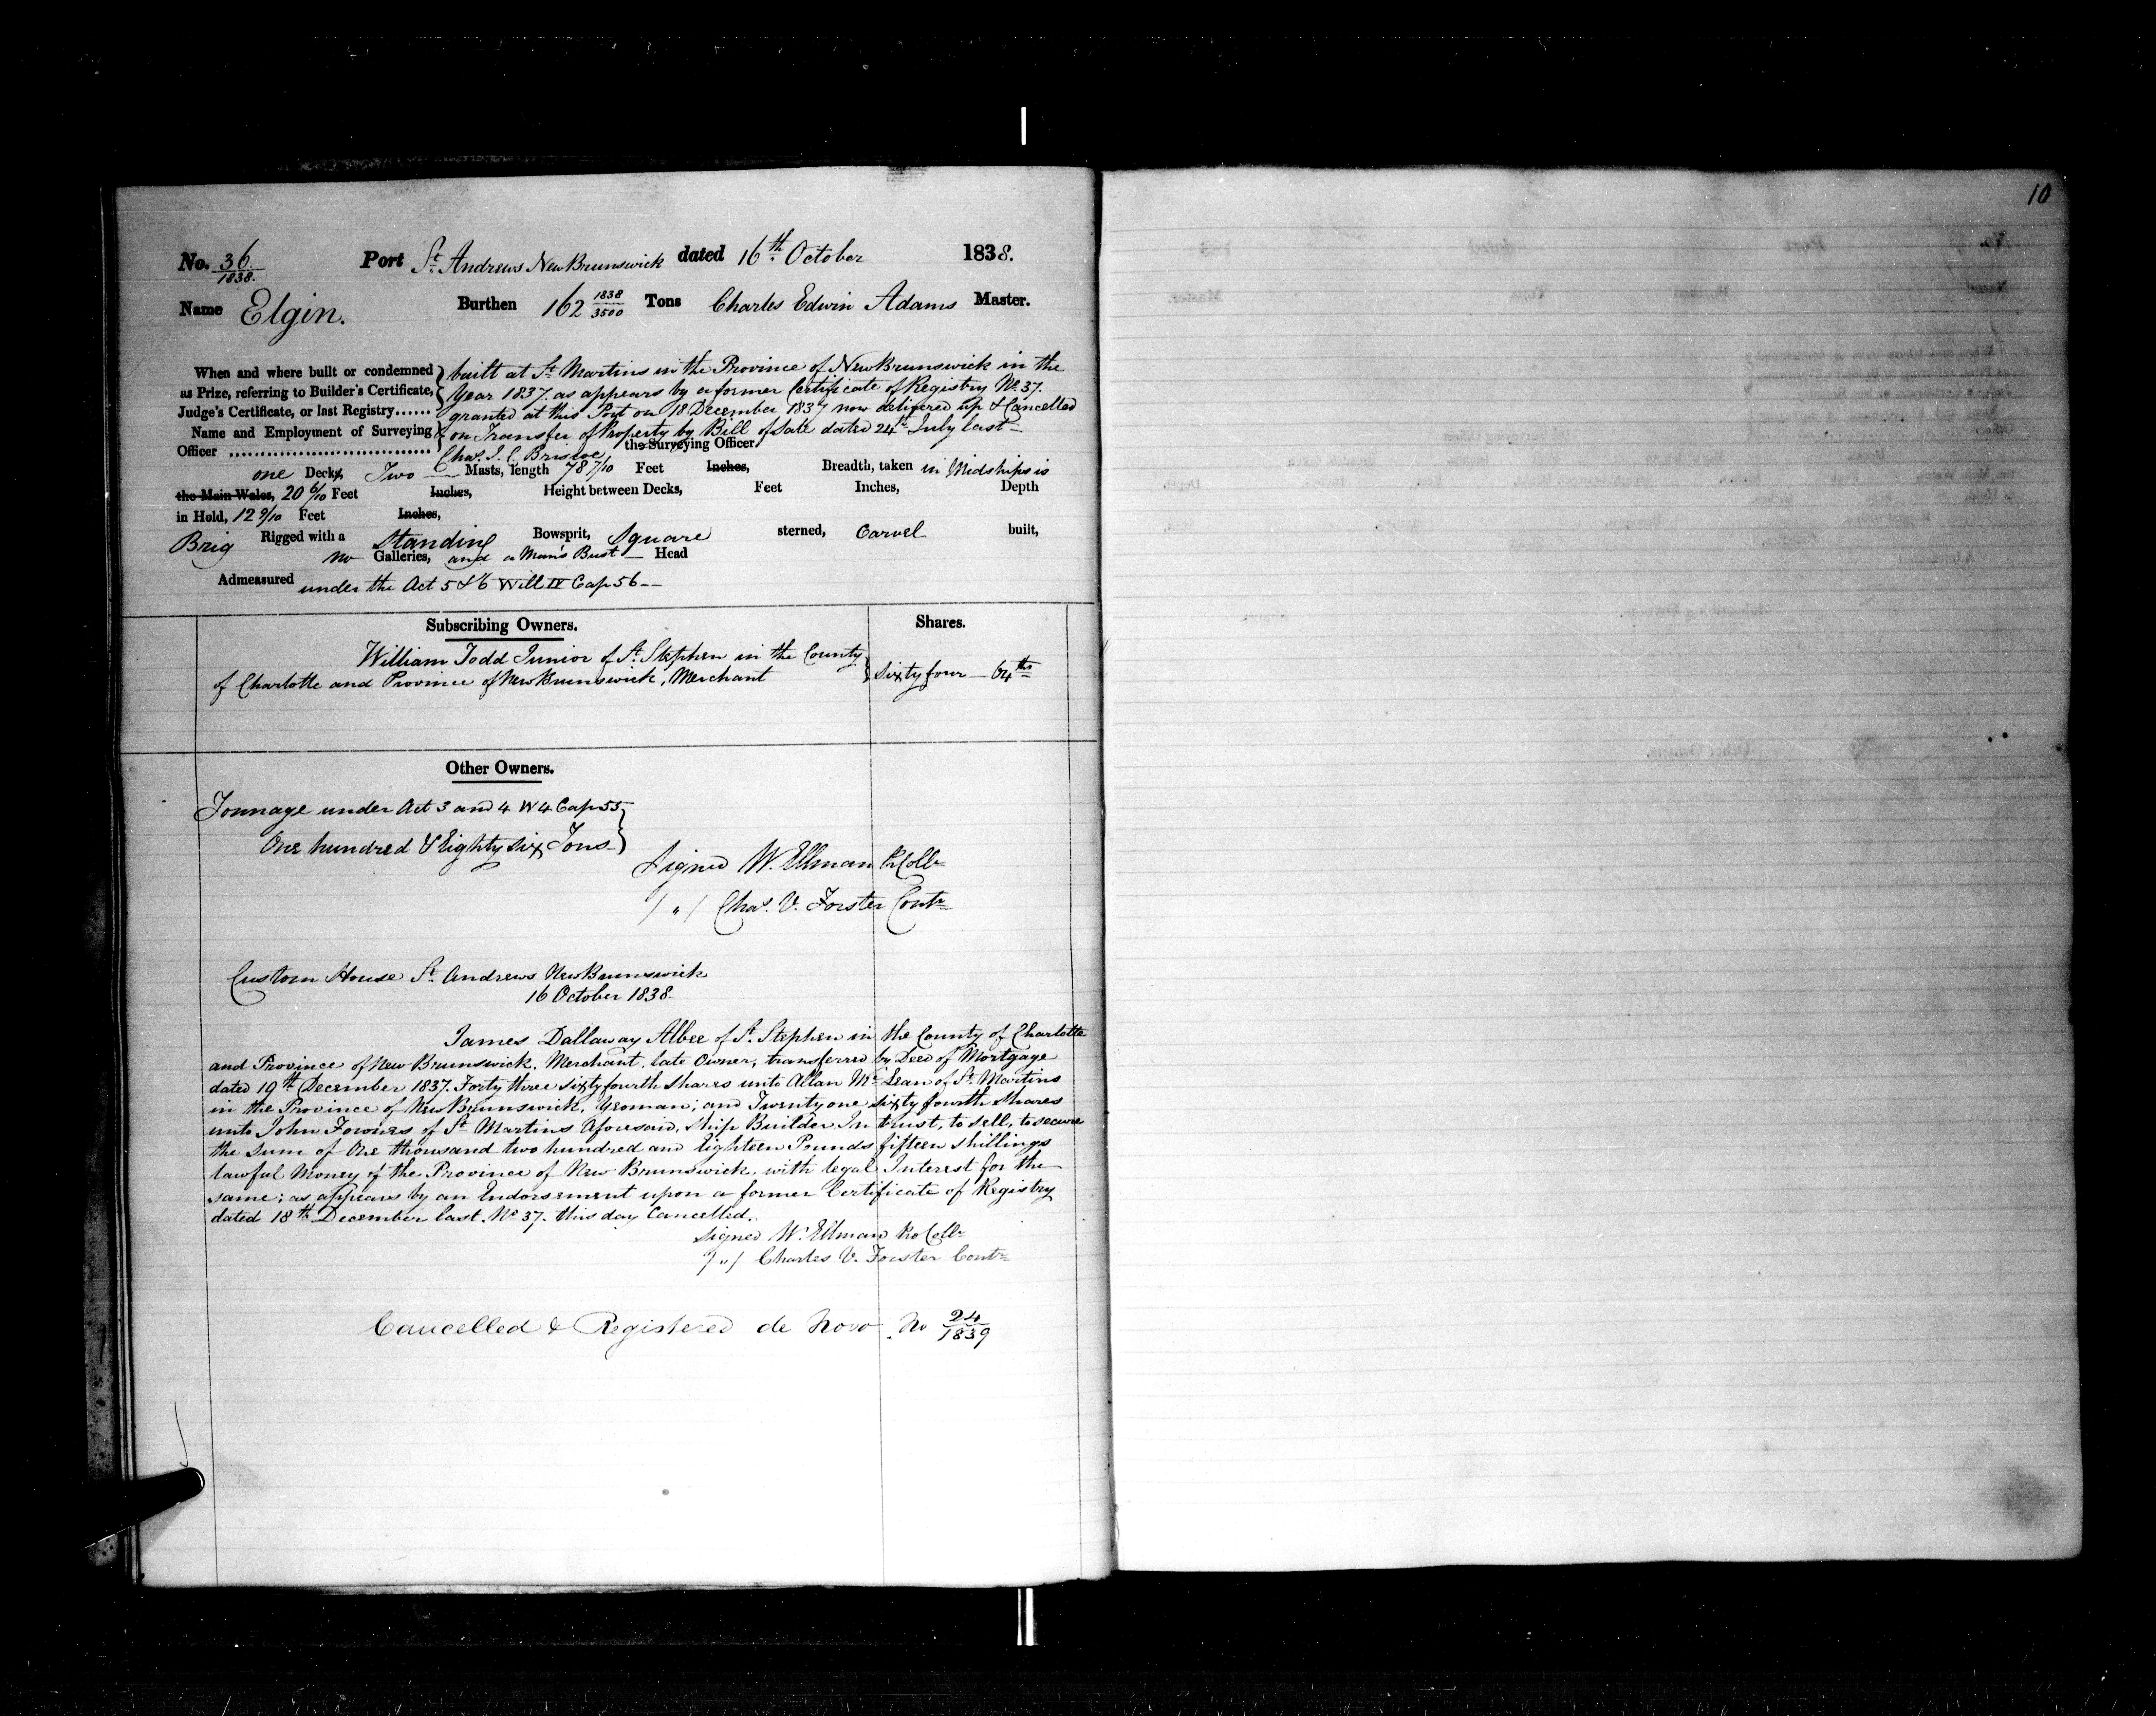 10
No. 36/1838. Port St. Andrews New Brunswick dated 16th October 1838.
Name Elgin. Burthen 162 1838/3500 Tons Charles Edwin Adams Master.
When and where built or condemned as Prize, referring to Builder's Certificate, Judge's Certificate, or last Registry......
built at St. Martins in the Province of New Brunswick in the
Year 1837. as appears by a former Certificate of Registry No. 37.
granted at this Port on 18 December 1837 now delivered up & Cancelled
on Transfer of Property by Bill of Sale dated 24th July last
Name and Employment of Surveying Officer
Chas. J. C. Briscoe the Surveying Officer.
one Decks, Two Masts, length 78 7/10 Feet Inches, Breadth, taken in Midships is
the Main Wales, 20 6/10 Feet Inches, Height between Decks, Feet Inches, Depth
in Hold, 12 9/10 Feet Inches,
Brig Rigged with a Standing Bowsprit, Square sterned, Carvel built,
no Galleries, and a Man's Bust Head
Admeasured under the Act 5 & 6 Will IV Cap 56
Subscribing Owners. Shares.
William Todd Junior of St. Stephen in the County
of Charlotte and Province of New Brunswick, Merchant } Sixty four 64ths
Other Owners.
Tonnage under Act 3 and 4 W 4 Cap 55
One hundred & Eighty six Tons
Signed W. Ellman Coll
/ " / Chas. V. Forster Contr
Custom House St. Andrews New Brunswick
16 October 1838
James Dallaway Albee of St. Stephen in the County of Charlotte
and Province of New Brunswick, Merchant, late Owner, transferred by Deed of Mortgage
dated 19th December 1837. Forty three sixty fourth Shares unto Allan Mc Lean of St. Martins
in the Province of New Brunswick, Yeoman; and Twenty one sixty fourth Shares
unto John Fownes of St. Martins Aforesaid, Ship Builder, In trust, to sell, to secure
the Sum of One thousand two hundred and Eighteen Pounds fifteen shillings
lawful Money of the Province of New Brunswick, with legal Interest for the
same; as appears by an Endorsement upon a former Certificate of Registry
dated 18th December last. No 37. this day Cancelled.
Signed W. Ellman Coll
/ " / Charles V. Forster Contr
Cancelled & Registered de Novo. No 24/1839